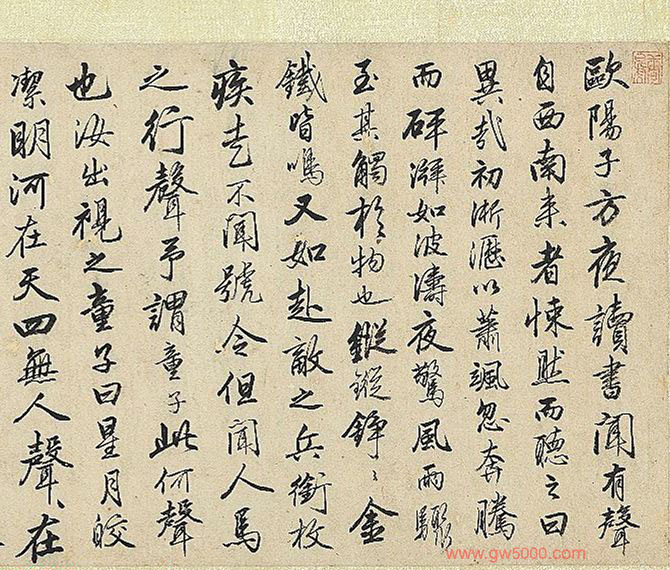 歐陽子方夜讀書聞有聲
自西南来者悚然而聽之曰
異哉初淅瀝以蕭颯忽奔騰
而砰湃如波濤夜驚風雨驟
至其觸於物也鏦鏦錚〻金
鐵皆鳴又如赴敵之兵銜枚
疾走不聞號令但聞人馬
之行聲予謂童子此何聲
也汝出視之童子曰星月皎
潔明河在天四無人聲〻在
www.gw5000.com